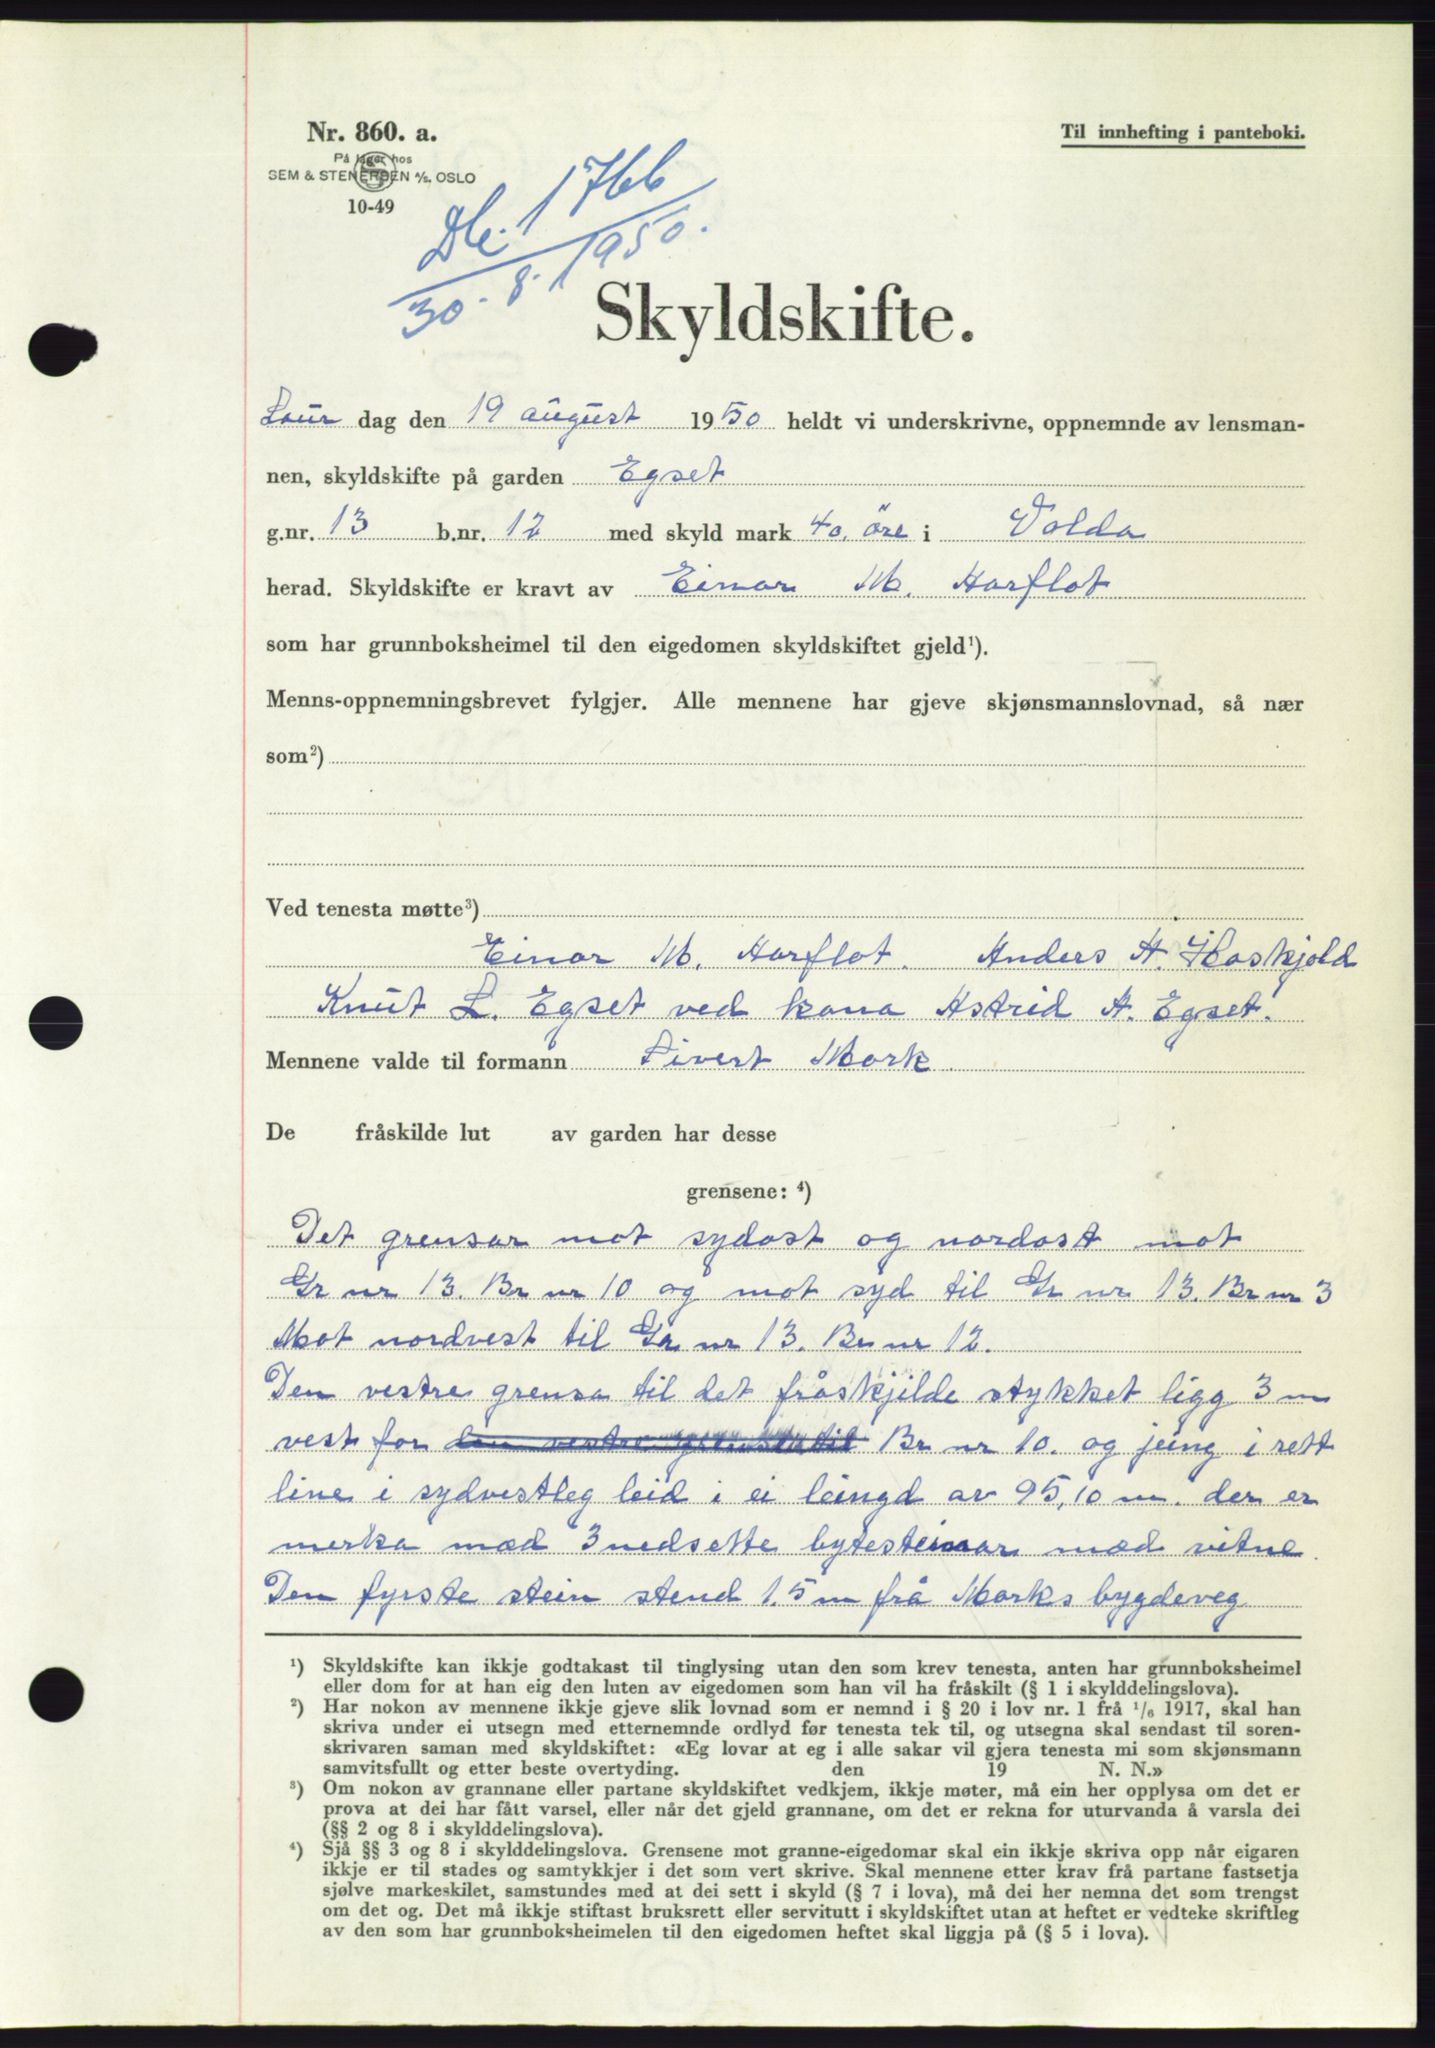 Nr. 860. a.
Til innhefting i panteboki.
På lager hos
SEM & STENERSEN A/S. OSLO
10-49
1766
30. 8. 1950.
Skyldskifte.
Laur dag den 19 august 1950 heldt vi underskrivne, oppnemnde av lensman-
nen, skyldskifte på garden Egset
g.nr. 13 b.nr. 12 med skyld mark 40 øre i Volda
herad. Skyldskifte er kravt av Einar M. Aarflot
som har grunnboksheimel til den eigedomen skyldskiftet gjeld¹).
Menns-oppnemningsbrevet fylgjer. Alle mennene har gjeve skjønsmannslovnad, så nær
som²)
Ved tenesta møtte³)
Einar M. Aarflot. Anders A. Haskjold
Knut L. Egset ved kona Astrid A. Egset.
Mennene valde til formann Sivert Mork
De fråskilde lut av garden har desse
grensene: ⁴)
Det grensar mot sydost og nordost mot
Gr nr 13. Br nr 10 og mot syd til Gr nr 13. Br nr 3
Mot nordvest til Gr nr 13. Br nr 12.
Den vestre grensa til det fråskjilde stykket ligg 3 m
vest for den vestre grensa til Br nr 10. og jeing i rett
line i sydvestleg leid i ei leingd av 95,10 m. der er
merka mæd 3 nedsette bytesteinar mæd vitne.
Den fyrste stein stend 1.5 m frå Morks bygdeveg
¹) Skyldskifte kan ikkje godtakast til tinglysing utan den som krev tenesta, anten har grunnboksheimel
eller dom for at han eig den luten av eigedomen som han vil ha fråskilt (§ 1 i skylddelingslova).
²) Har nokon av mennene ikkje gjeve slik lovnad som er nemnd i § 20 i lov nr. 1 frå 1/6 1917, skal han
skriva under ei utsegn med etternemnde ordlyd før tenesta tek til, og utsegna skal sendast til soren-
skrivaren saman med skyldskiftet: «Eg lovar at eg i alle sakar vil gjera tenesta mi som skjønsmann
samvitsfullt og etter beste overtyding. den 19 N. N.»
³) Om nokon av grannane eller partane skyldskiftet vedkjem, ikkje møter, må ein her opplysa om det er
prova at dei har fått varsel, eller når det gjeld grannane, om det er rekna for uturvanda å varsla dei
(§§ 2 og 8 i skylddelingslova).
⁴) Sjå §§ 3 og 8 i skylddelingslova. Grensene mot granne-eigedomar skal ein ikkje skriva opp når eigaren
ikkje er til stades og samtykkjer i det som vert skrive. Skal mennene etter krav frå partane fastsetja
sjølve markeskilet, samstundes med at dei sett i skyld (§ 7 i lova), må dei her nemna det som trengst
om det og. Det må ikkje stiftast bruksrett eller servitutt i skyldskiftet utan at heftet er vedteke skriftleg
av den som har grunnboksheimelen til den eigedomen heftet skal liggja på (§ 5 i lova).